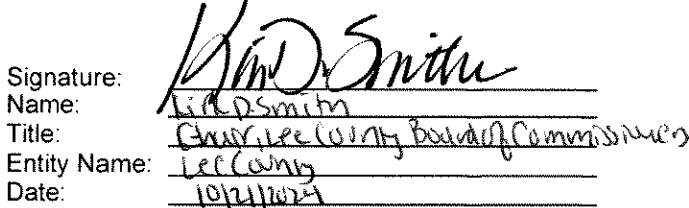 Signature: Kirk D. Smith
Name: Kirk D. Smith
Title: Chair, Lee County Board of Commissioners
Entity Name: Lee County
Date: 10/21/2024